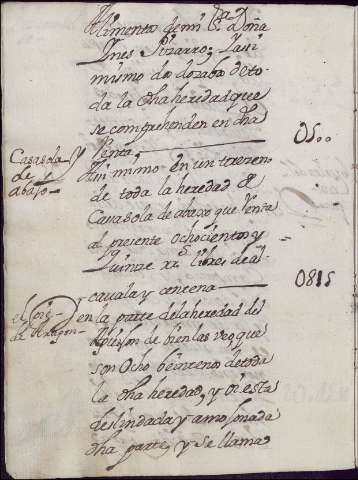 Alimento de mi Sra Doña
Ines Pizarro, Y assi
mismo dos dozabos de to
da la dha heredad que
se comprehenden en dha
Renta, 0500
Casasola
de
abajo
Assi mismo en un trezeno
de toda la heredad de
Casasola de abaxo que Renta
al presente ochocientos y
Quinze rrs libres de al
cavala y centena 0815
de Aragon
en la parte de la heredad del
de bienlas veo, que
son Ocho beinteno de toda
la dha heredad, y esta
deslindada y amojonada
dha parte, y se llama